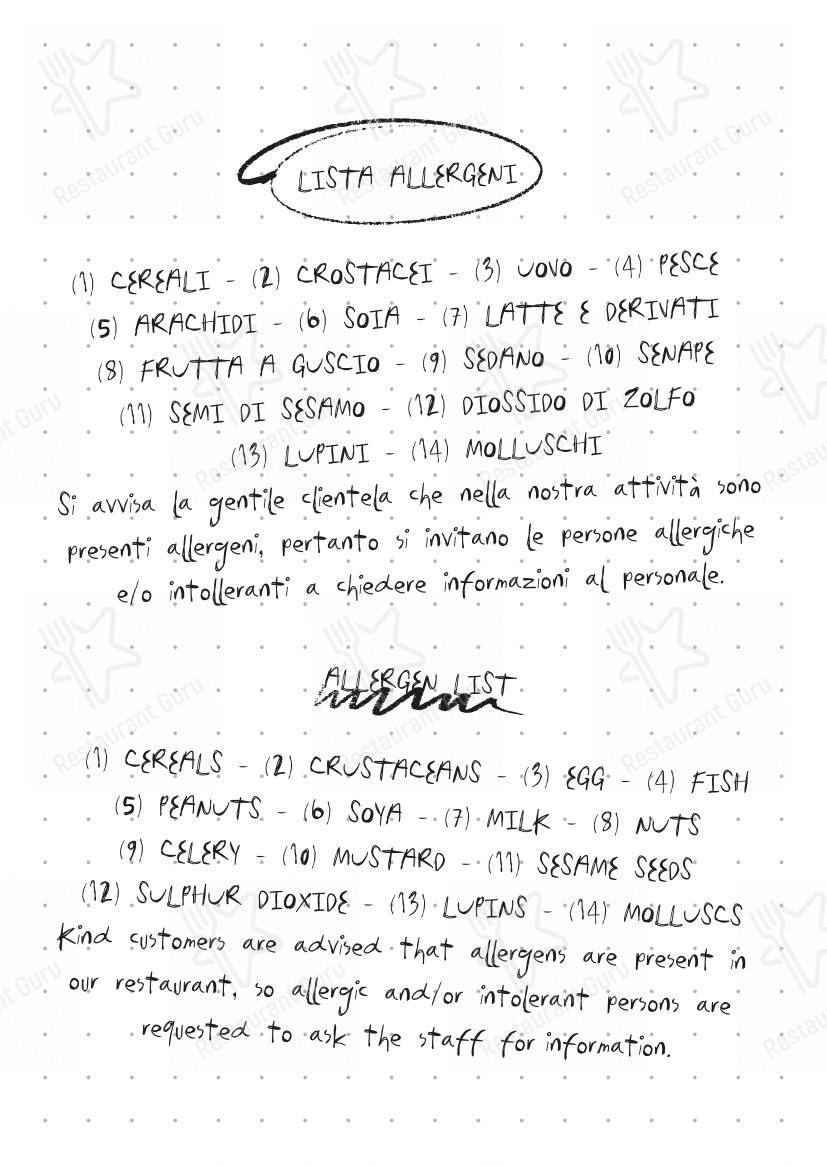 LISTA ALLERGENI
(1) CEREALI - (2) CROSTACEI - (3) UOVO - (4) PESCE
(5) ARACHIDI - (6) SOIA - (7) LATTE E DERIVATI
(8) FRUTTA A GUSCIO - (9) SEDANO - (10) SENAPE
(11) SEMI DI SESAMO - (12) DIOSSIDO DI ZOLFO
(13) LUPINI - (14) MOLLUSCHI
Si avvisa la gentile clientela che nella nostra attività sono
presenti allergeni, pertanto si invitano le persone allergiche
e/o intolleranti a chiedere informazioni al personale.
ALLERGEN LIST
(1) CEREALS - (2) CRUSTACEANS - (3) EGG - (4) FISH
(5) PEANUTS - (6) SOYA - (7) MILK - (8) NUTS
(9) CELERY - (10) MUSTARD - (11) SESAME SEEDS
(12) SULPHUR DIOXIDE - (13) LUPINS - (14) MOLLUSCS
Kind customers are advised that allergens are present in
our restaurant, so allergic and/or intolerant persons are
requested to ask the staff for information.
Restaurant Guru